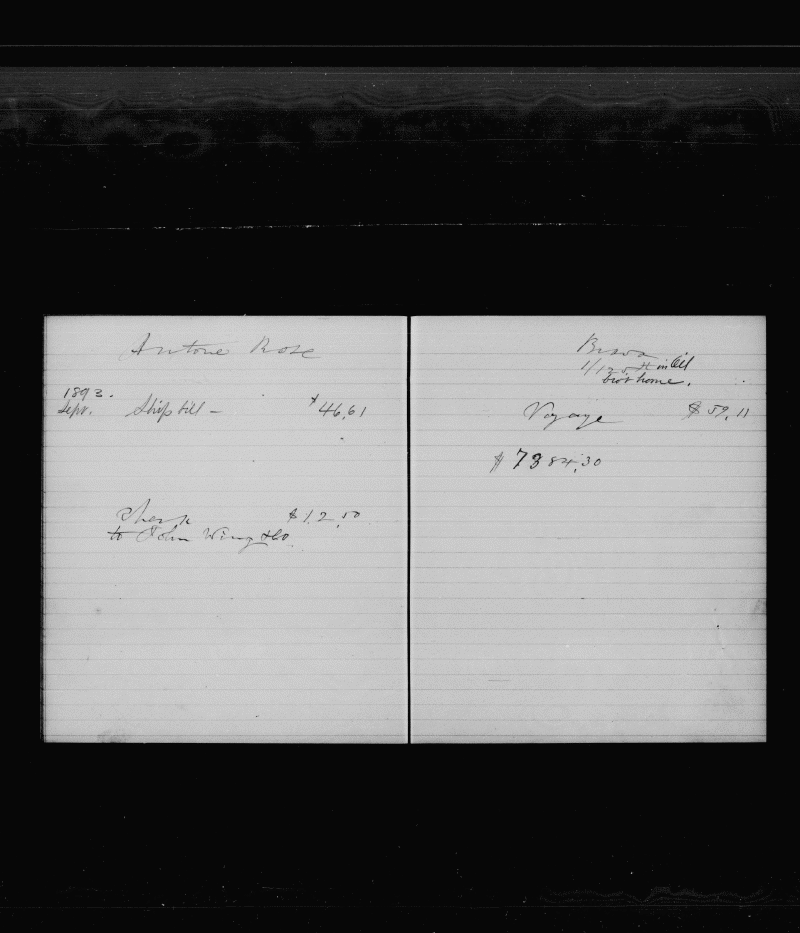 Antone Rose
1893.
Sept. Ship bill — $46.61
Check $12.50
to John Wing & Co
Brava
1/125 in Oil
bro't home.
Voyage $59.11
$7384.30